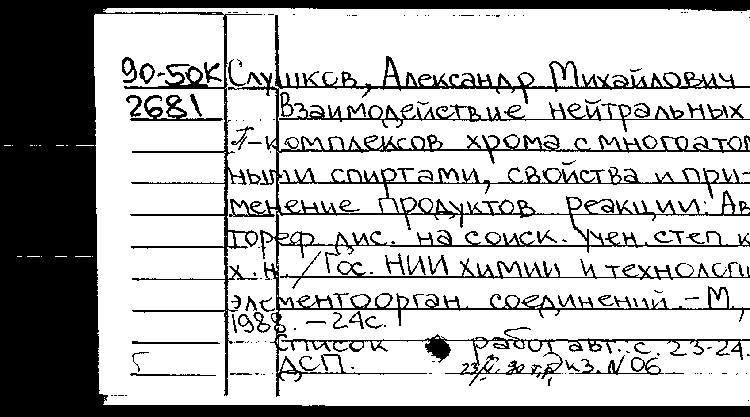 90-50К Слушков, Александр Михайлович
2681 Взаимодействие нейтральных
π-комплексов хрома с многоатом
ными спиртами, свойства и при-
менение продуктов реакции: Ав
тореф. дис. на соиск. учен. степ к
х.н. / Гос. НИИ химии и технологи
элементоорган. соединений. - М.,
1988. - 24с.
Список работ авт.: с. 23-24.
ДСП. экз. N 06